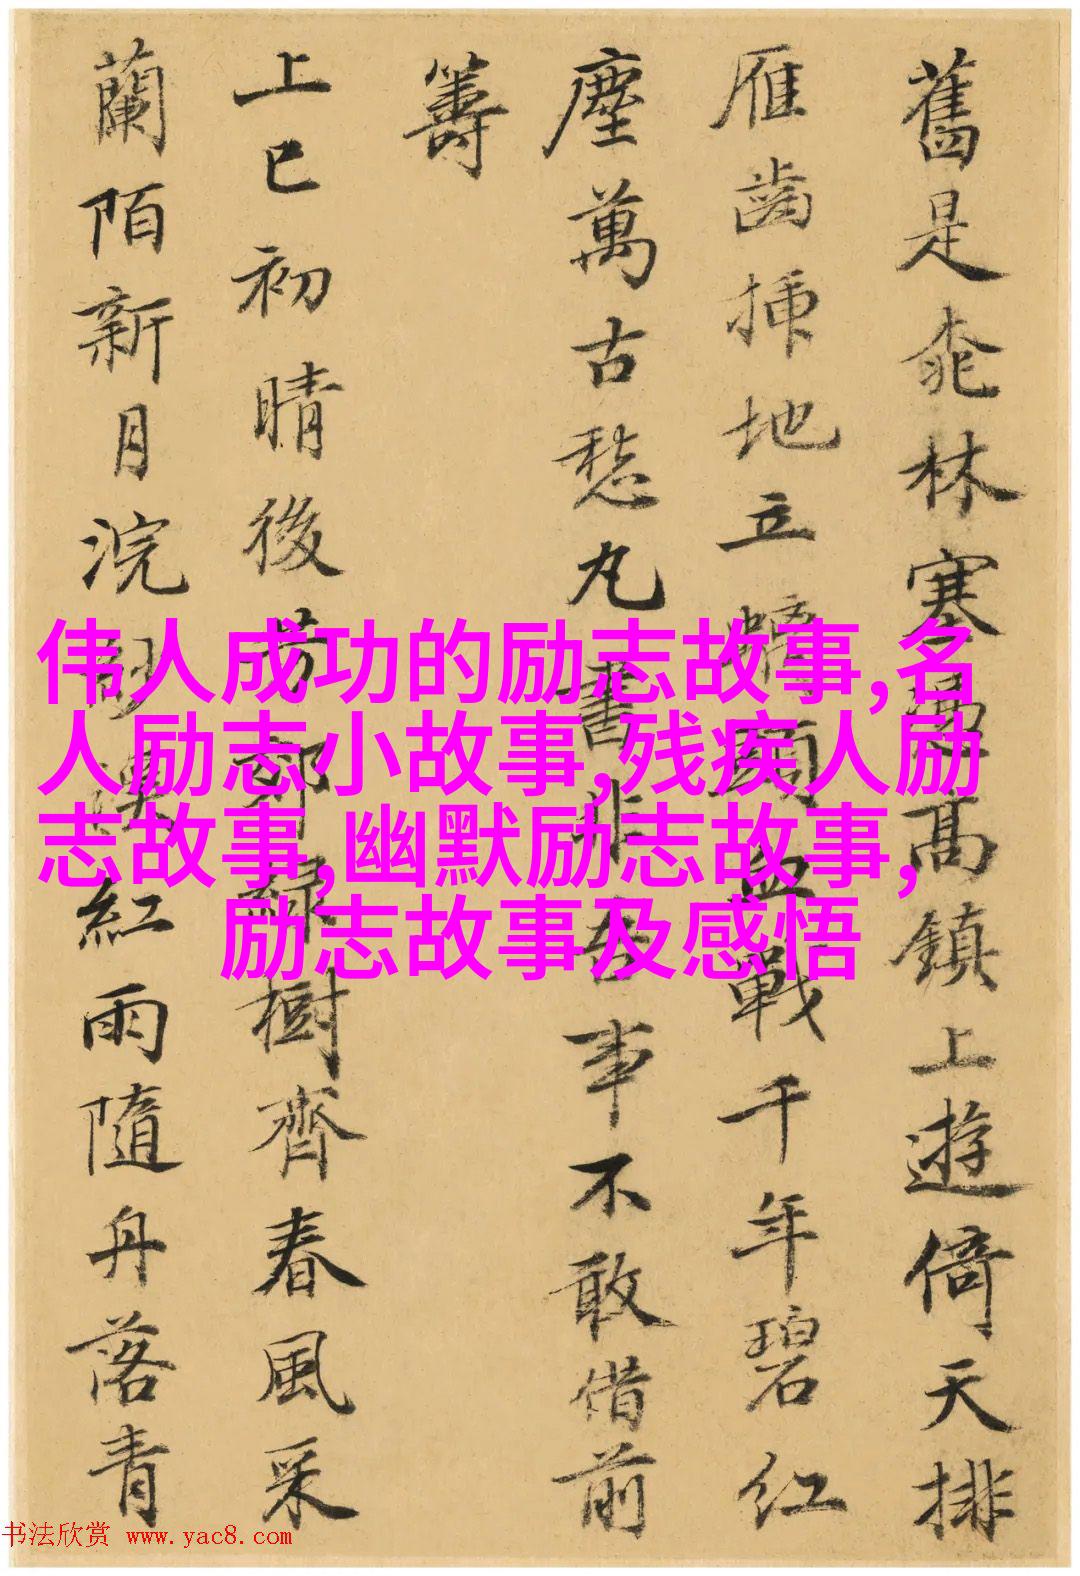 舊是桃林塞高鎮上遊倚天排
雁齒插地立螭頭血戰千年碧紅
塵萬古愁丸書非吾事不敢借前
籌
上巳初晴後芳郊綠樹齊春風采
蘭陌新月浣紗溪紅雨隨舟落青
伟人成功的励志故事,名
人励志小故事,残疾人励
志故事,幽默励志故事,
励志故事及感悟
书法欣赏 www.yac8.com